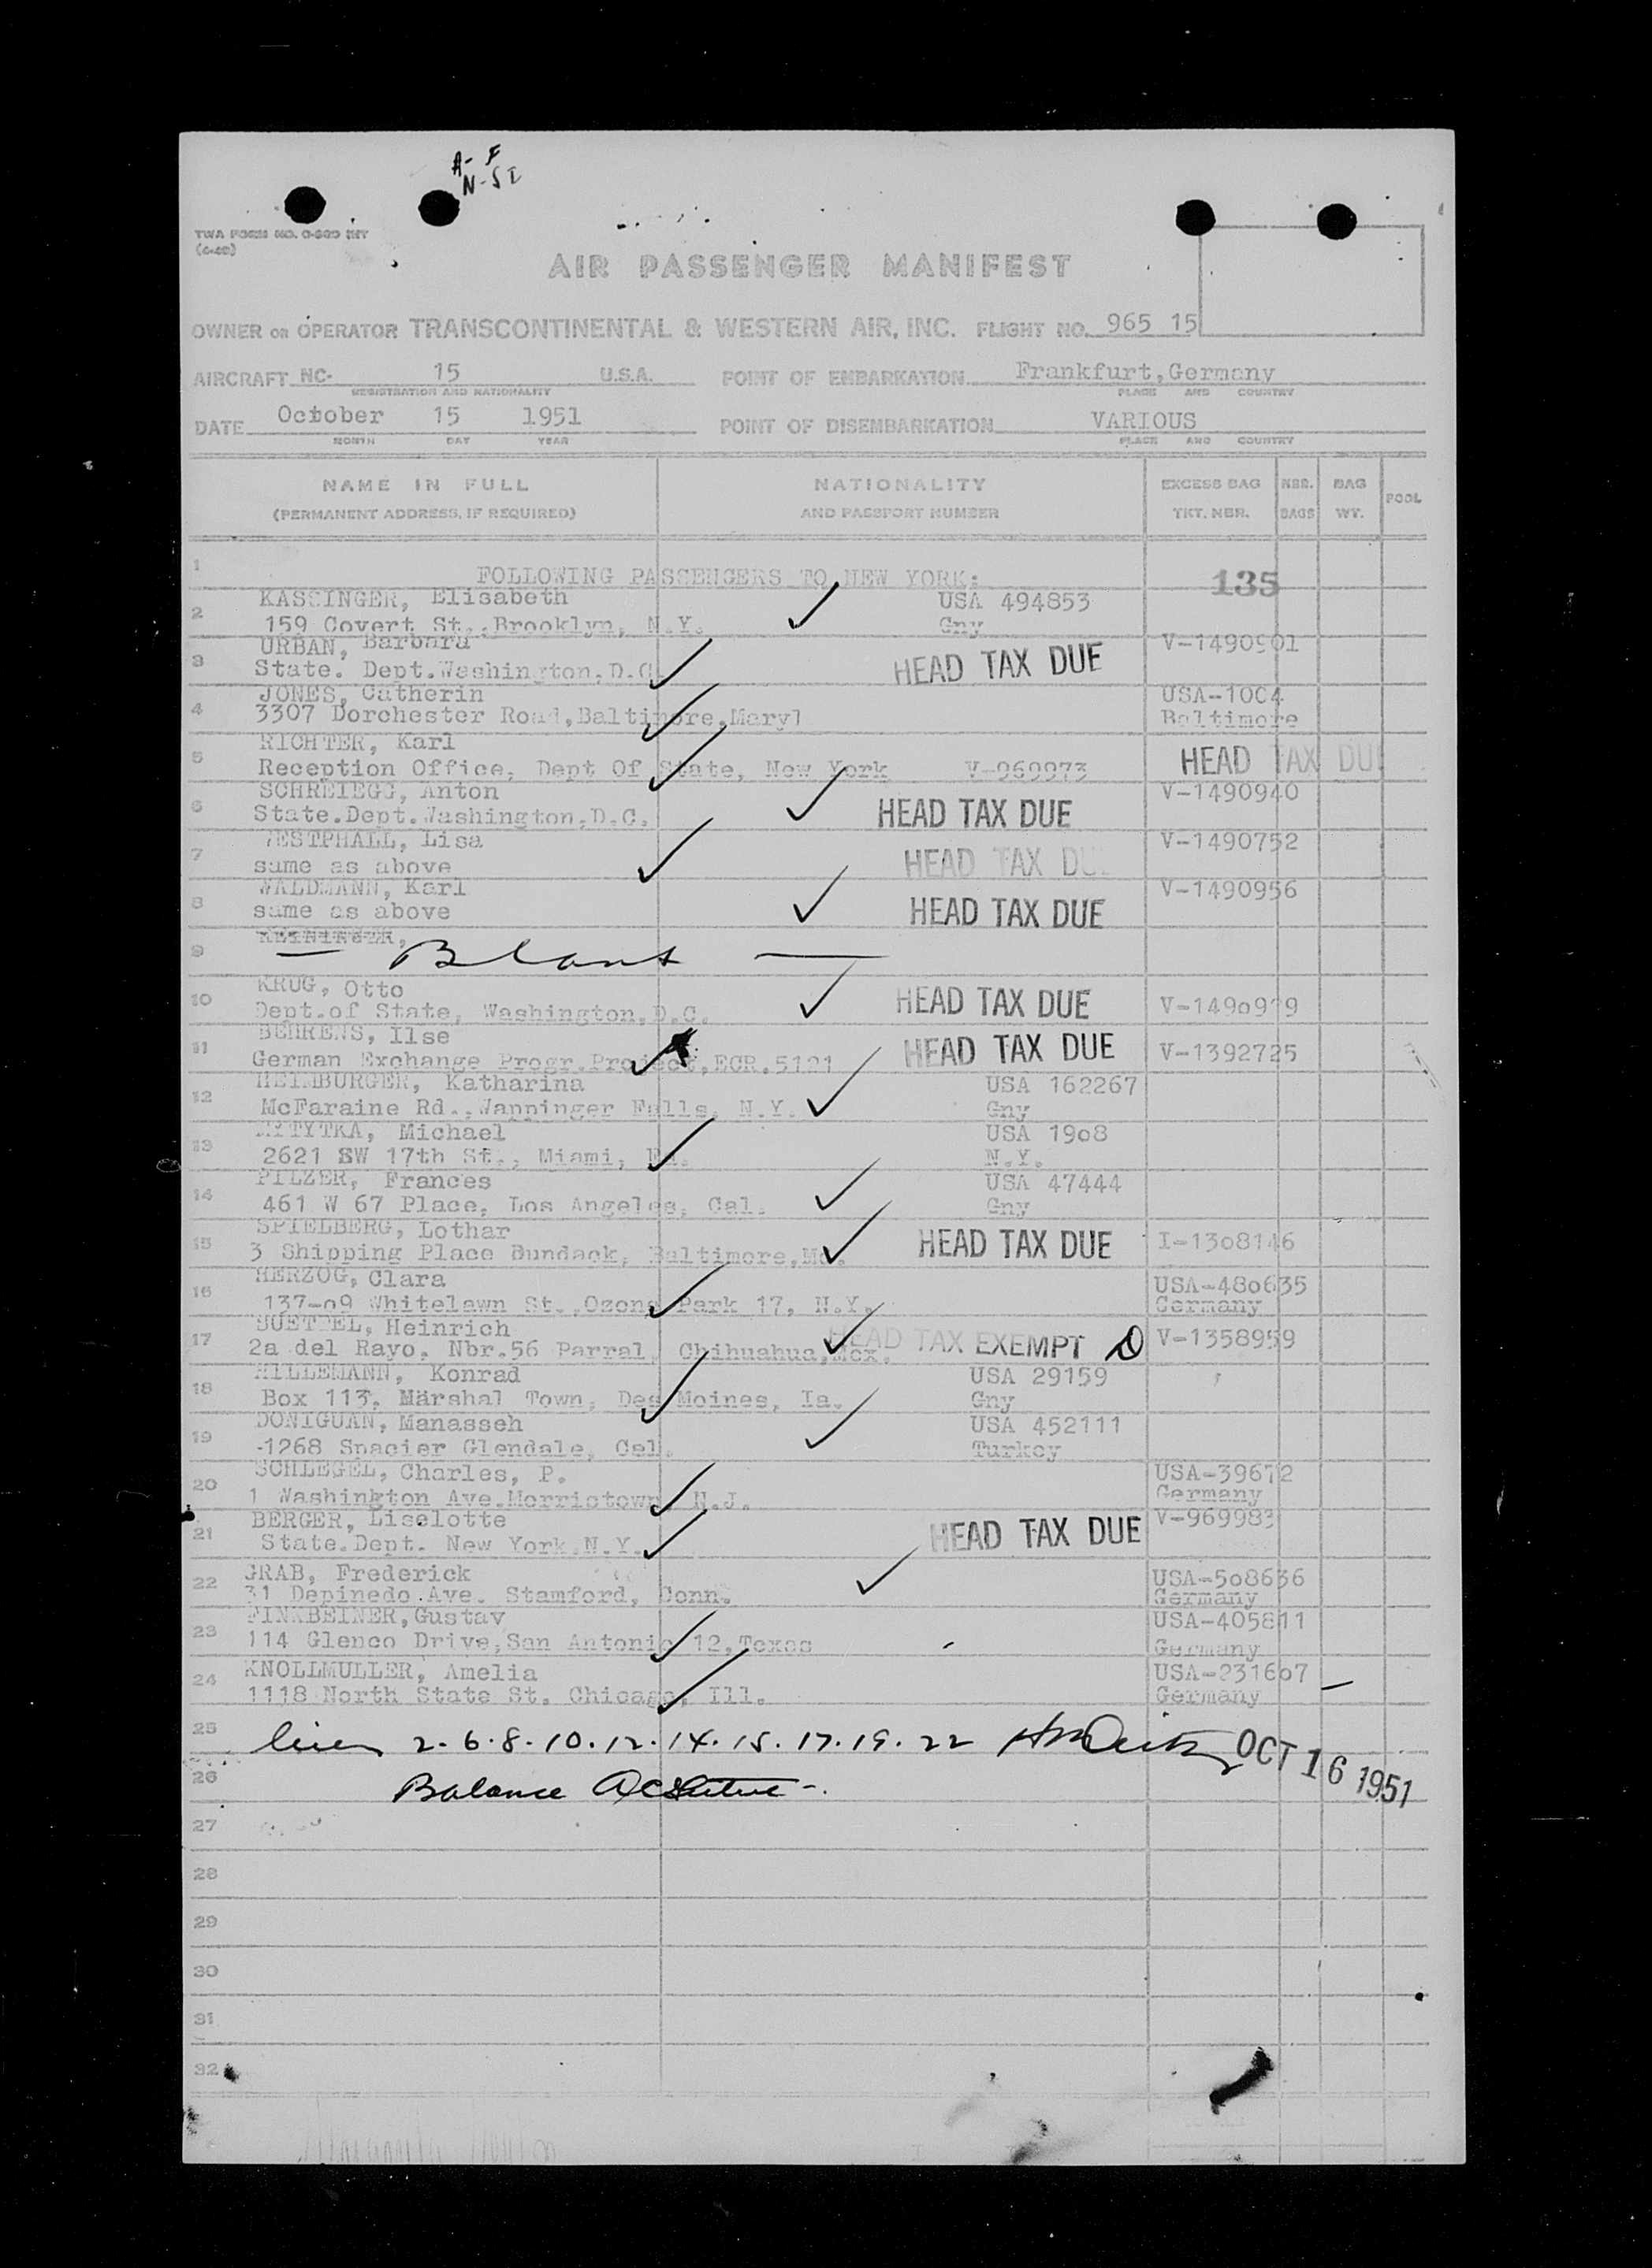 A- F
N-SI
TWA FORM NO.
AIR PASSENGER MANIFEST
OWNER OR OPERATOR TRANSCONTINENTAL & WESTERN AIR, INC. FLIGHT NO. 965 15
AIRCRAFT NC- 15 U.S.A. POINT OF EMBARKATION Frankfurt,Germany
REGISTRATION AND NATIONALITY PLACE AND COUNTRY
DATE October 15 1951 POINT OF DISEMBARKATION VARIOUS
MONTH DAY YEAR PLACE AND COUNTRY
NAME IN FULL NATIONALITY EXCESS BAG NBR. BAG POOL
(PERMANENT ADDRESS, IF REQUIRED) AND PASSPORT NUMBER TKT. NBR. BAGS WT.
1 FOLLOWING PASSENGERS TO NEW YORK: 135
KASSINGER, Elisabeth USA 494853
2 159 Covert St.,Brooklyn, N.Y. Gny
URBAN, Barbara V-1490901
3 State. Dept.Washington,D.C HEAD TAX DUE
JONES, Catherin USA-1004
4 3307 Dorchester Road,Baltimore,Maryl Baltimore
RICHTER, Karl
5 Reception Office, Dept Of State, New York V-969973 HEAD TAX DUE
SCHREIEGG, Anton V-1490940
6 State.Dept.Washington,D.C. HEAD TAX DUE
WESTPHALL, Lisa V-1490752
7 same as above HEAD TAX DUE
WALDMANN, Karl V-1490956
8 same as above HEAD TAX DUE
9 — Blank —
KRUG, Otto
10 Dept.of State, Washington,D.C. HEAD TAX DUE
BEHRENS, Ilse
11 German Exchange Progr.Project,ECR.5121 HEAD TAX DUE V-1392725
HEIMBURGER, Katharina USA 162267
12 McFaraine Rd.,Wappinger Falls, N.Y. Gny
Michael USA 19o8
13 2621 SW 17th St., Miami, N.Y.
PILZER, Frances USA 47444
14 461 W 67 Place, Los Angeles, Cal. Gny
SPIELBERG, Lothar
15 3 Shipping Place Dundack, Baltimore,Md. HEAD TAX DUE I-13o8146
HERZOG, Clara USA-48o635
16 137-o9 Whitelawn St.,Ozone Park 17, N.Y. Germany
Heinrich
17 2a del Rayo. Nbr.56 Parral, Chihuahua,Mex. HEAD TAX EXEMPT D V-1358959
HILLEMANN, Konrad USA 29159
18 Box 113, Marshal Town, Des Moines, Ia. Gny
DONIGUAN, Manasseh USA 452111
19 -1268 Spacier Glendale, Cal. Turkey
SCHLEGEL, Charles, P. USA-39672
20 1 Washington Ave.Morristown, N.J. Germany
BERGER, Liselotte V-969983
21 State.Dept. New York,N.Y. HEAD TAX DUE
GRAB, Frederick USA-5o8636
22 31 Depinedo.Ave. Stamford, Conn. Germany
FINKBEINER,Gustav USA-405811
23 114 Glenco Drive,San Antonio 12,Texas Germany
KNOLLMULLER, Amelia USA-2316o7
24 1118 North State St. Chicago, Ill. Germany
25 lines 2.6.8.10.12.14.15.17.19.22 OCT 16 1951
26 Balance
27
28
29
30
31
32